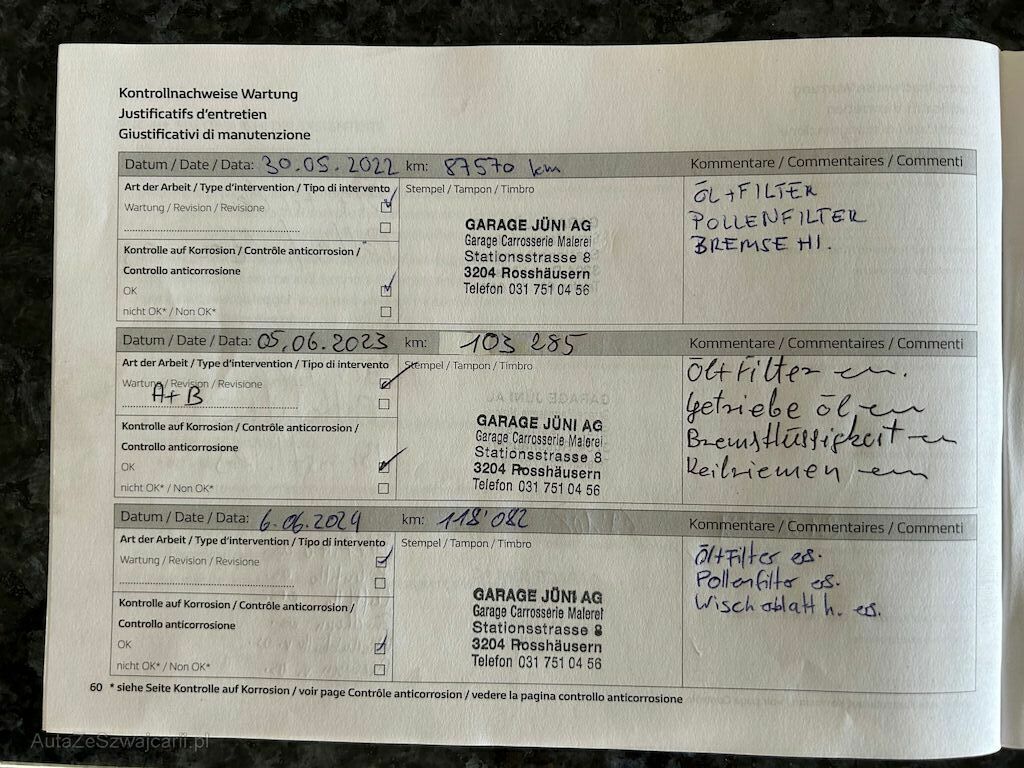 Kontrollnachweise Wartung
Justificatifs d'entretien
Giustificativi di manutenzione
Datum / Date / Data: 30.05.2022 km: 87570 km Kommentare / Commentaires / Commenti
Art der Arbeit / Type d'intervention / Tipo di intervento
Wartung / Revision / Revisione
Kontrolle auf Korrosion / Contrôle anticorrosion /
Controllo anticorrosione
OK
nicht OK* / Non OK*
Stempel / Tampon / Timbro
GARAGE JÜNI AG
Garage Carrosserie Malerei
Stationsstrasse 8
3204 Rosshäusern
Telefon 031 751 04 56
ÖL + FILTER
POLLENFILTER
BREMSE HI.
Datum / Date / Data: 05.06.2023 km: 103 285 Kommentare / Commentaires / Commenti
Art der Arbeit / Type d'intervention / Tipo di intervento
Wartung / Revision / Revisione
A+B
Kontrolle auf Korrosion / Contrôle anticorrosion /
Controllo anticorrosione
OK
nicht OK* / Non OK*
Stempel / Tampon / Timbro
GARAGE JÜNI AG
Garage Carrosserie Malerei
Stationsstrasse 8
3204 Rosshäusern
Telefon 031 751 04 56
Öl+Filter
Getriebe öl
Bremsflüssigkeit
Keilriemen
Datum / Date / Data: 6.06.2024 km: 118'082 Kommentare / Commentaires / Commenti
Art der Arbeit / Type d'intervention / Tipo di intervento
Wartung / Revision / Revisione
Kontrolle auf Korrosion / Contrôle anticorrosion /
Controllo anticorrosione
OK
nicht OK* / Non OK*
Stempel / Tampon / Timbro
GARAGE JÜNI AG
Garage Carrosserie Malerei
Stationsstrasse 8
3204 Rosshäusern
Telefon 031 751 04 56
Öl+Filter es.
Pollenfilter es.
Wischblatt h. es.
60 * siehe Seite Kontrolle auf Korrosion / voir page Contrôle anticorrosion / vedere la pagina controllo anticorrosione
AutaZeSzwajcarii.pl